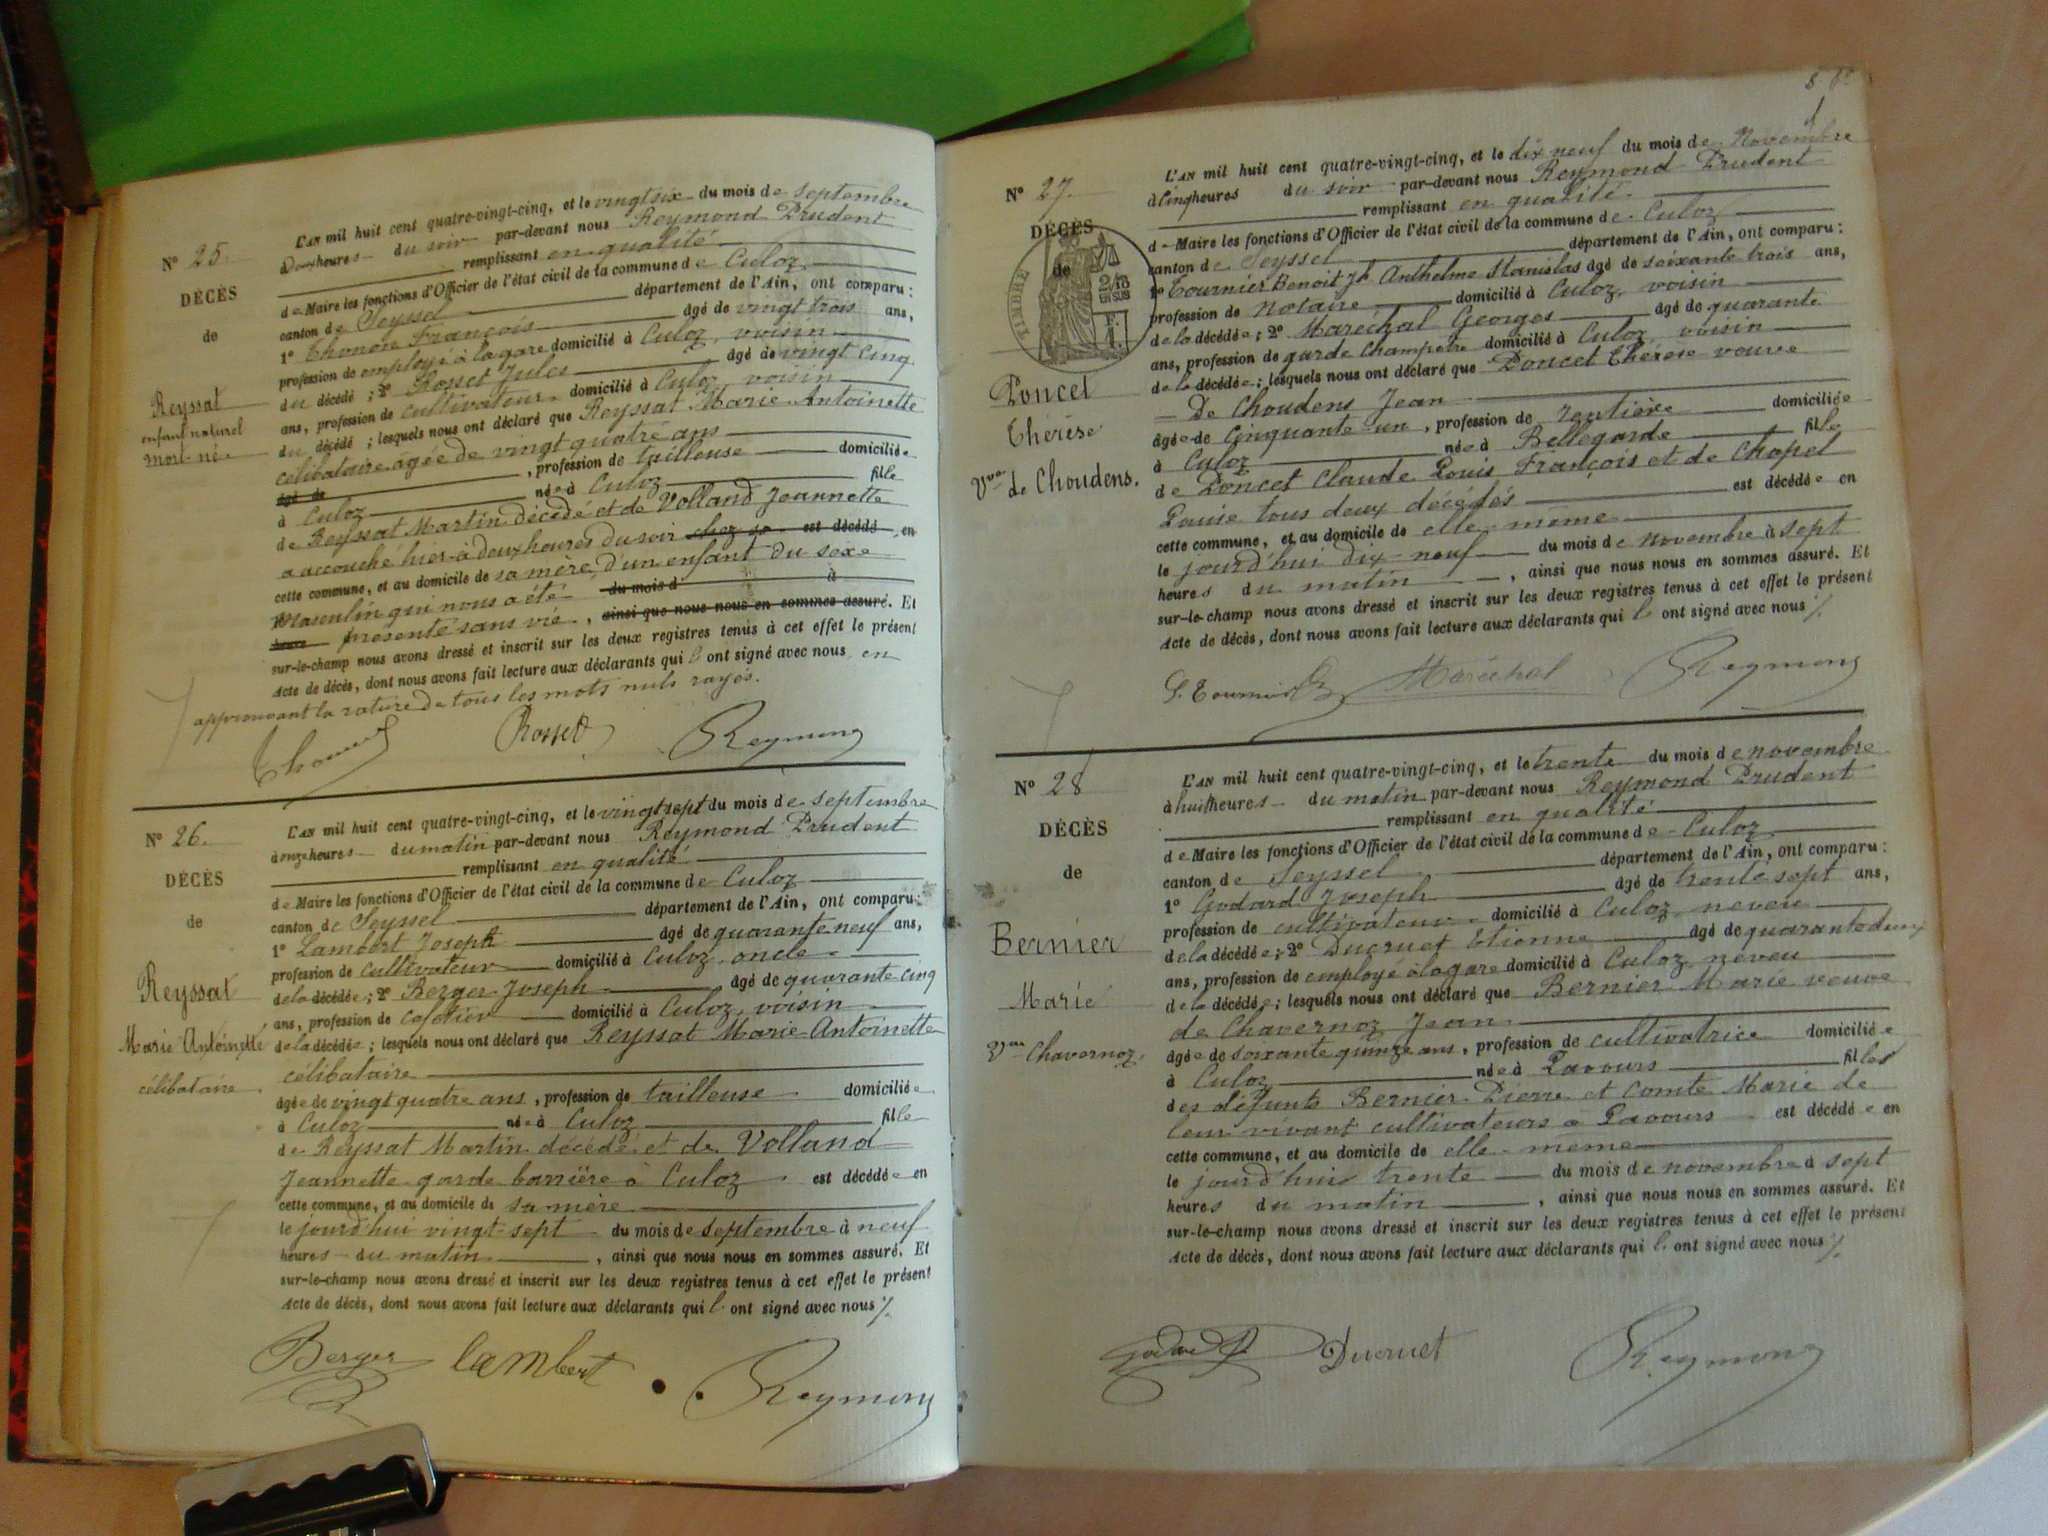 N° 25.
DÉCÈS
de
Reyssat
enfant naturel
mort-né
L'AN mil huit cent quatre-vingt-cinq, et le vingt six du mois de septembre
à heures du soir par-devant nous Reymond Prudent
remplissant en qualité
de Maire les fonctions d'Officier de l'état civil de la commune de Culoz
canton de Seyssel département de l'Ain, ont comparu :
1° Thonon François âgé de vingt trois ans,
profession de employé à la gare domicilié à Culoz, voisin
du décédé ; 2° Rosset Jules âgé de vingt cinq
ans, profession de cultivateur domicilié à Culoz, voisin
du décédé ; lesquels nous ont déclaré que Reyssat Marie Antoinette
célibataire âgée de vingt quatre ans
âgé de , profession de tailleuse domiciliée
à Culoz née à Culoz fille
de Reyssat Martin décédé et de Volland Jeannette
a accouché hier à deux heures du soir est décédé en
cette commune, et au domicile de sa mère d'un enfant du sexe
masculin qui nous a été du mois d à
heure présenté sans vie , ainsi que nous nous en sommes assuré. Et
sur-le-champ nous avons dressé et inscrit sur les deux registres tenus à cet effet le présent
Acte de décès, dont nous avons fait lecture aux déclarants qui l'ont signé avec nous, en
approuvant la rature de tous les mots nuls rayés.
Rosset Reymond
N° 26.
DÉCÈS
de
Reyssat
Marie Antoinette
célibataire
L'AN mil huit cent quatre-vingt-cinq, et le vingt sept du mois de septembre
à onze heures du matin par-devant nous Reymond Prudent
remplissant en qualité
de Maire les fonctions d'Officier de l'état civil de la commune de Culoz
canton de Seyssel département de l'Ain, ont comparu :
1° Lambert Joseph âgé de quarante neuf ans,
profession de cultivateur domicilié à Culoz, oncle
de la décédée ; 2° Berger Joseph âgé de quarante cinq
ans, profession de cafetier domicilié à Culoz, voisin
de la décédée ; lesquels nous ont déclaré que Reyssat Marie-Antoinette
célibataire
âgée de vingt quatre ans , profession de tailleuse domiciliée
à Culoz née à Culoz fille
de Reyssat Martin décédé et de Volland
Jeannette garde barrière à Culoz est décédée en
cette commune, et au domicile de sa mère
le jourd'hui vingt-sept du mois de septembre à neuf
heures du matin , ainsi que nous nous en sommes assuré. Et
sur-le-champ nous avons dressé et inscrit sur les deux registres tenus à cet effet le présent
Acte de décès, dont nous avons fait lecture aux déclarants qui l'ont signé avec nous
Berger Lambert Reymond
N° 27.
DÉCÈS
de
TIMBRE
Poncet
Thérèse
Vve de Choudens.
L'AN mil huit cent quatre-vingt-cinq, et le dix neuf du mois de Novembre
à Cinq heures du soir par-devant nous Reymond Prudent
remplissant en qualité
de Maire les fonctions d'Officier de l'état civil de la commune de Culoz
canton de Seyssel département de l'Ain, ont comparu :
1° Tournier Benoit Jh Anthelme Stanislas âgé de soixante trois ans,
profession de Notaire domicilié à Culoz, voisin
de la décédée ; 2° Maréchal Georges âgé de quarante
ans, profession de garde Champetre domicilié à Culoz voisin
de la décédée ; lesquels nous ont déclaré que Poncet Thérèse veuve
De Choudens Jean
âgée de Cinquante-un , profession de rentière domiciliée
à Culoz née à Bellegarde fille
de Poncet Claude Louis François et de Chapel
Louise tous deux décédés est décédée en
cette commune, et au domicile de elle-même
le jourd'hui dix-neuf du mois de novembre à sept
heures du matin , ainsi que nous nous en sommes assuré. Et
sur-le-champ nous avons dressé et inscrit sur les deux registres tenus à cet effet le présent
Acte de décès, dont nous avons fait lecture aux déclarants qui l'ont signé avec nous
Maréchal Reymond
N° 28
DÉCÈS
de
Bernier
Marie
Vve Chavernoz.
L'AN mil huit cent quatre-vingt-cinq, et le trente du mois de novembre
à huit heures du matin par-devant nous Reymond Prudent
remplissant en qualité
de Maire les fonctions d'Officier de l'état civil de la commune de Culoz
canton de Seyssel département de l'Ain, ont comparu :
1° Godard Joseph âgé de trente sept ans,
profession de cultivateur domicilié à Culoz, neveu
de la décédée ; 2° Ducruet Etienne âgé de quarante deux
ans, profession de employé à la gare domicilié à Culoz, neveu
de la décédée ; lesquels nous ont déclaré que Bernier Marie veuve
de Chavernoz Jean
âgée de soixante quinze ans , profession de cultivatrice domiciliée
à Culoz née à Lavours fille
des défunts Bernier Pierre et Comte Marie de
leur vivant cultivateurs à Lavours est décédée en
cette commune, et au domicile de elle-même
le jourd'hui trente du mois de novembre à sept
heures du matin , ainsi que nous nous en sommes assuré. Et
sur-le-champ nous avons dressé et inscrit sur les deux registres tenus à cet effet le présent
Acte de décès, dont nous avons fait lecture aux déclarants qui l'ont signé avec nous
Ducruet Reymond